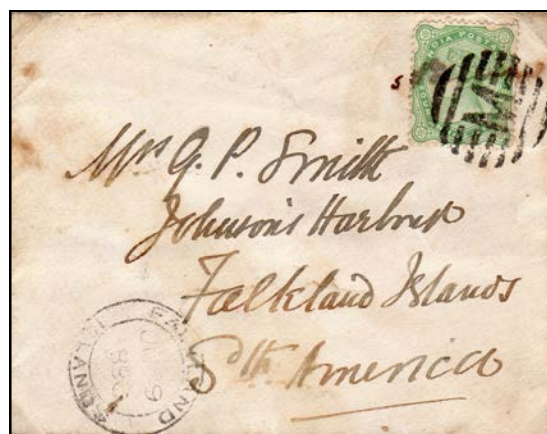 INDIA POSTAGE
Mrs G. P. Smith
Johnson's Harbour
Falkland Islands
Sth. America
FALKLAND ISLANDS